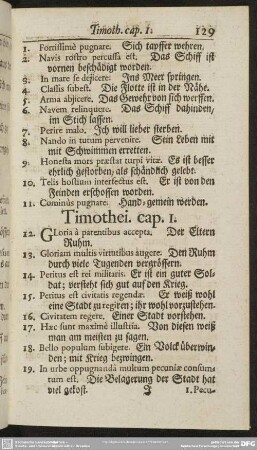 Timoth. cap. I. 129
1. Fortissimè pugnare. Sich tapffer wehren.
2. Navis rostro percussa est. Das Schiff ist
vornen beschädigt worden.
3. In mare se dejicere. Ins Meer springen.
4. Classis subest. Die Flotte ist in der Nähe.
5. Arma abjicere. Das Gewehr von sich werffen.
6. Navem relinquere. Das Schiff dahinden,
im Stich lassen.
7. Perire malo. Ich will lieber sterben.
8. Nando in tutum pervenire. Sein Leben mit
mit Schwimmen erretten.
9. Honesta mors præstat turpi vitæ. Es ist besser
ehrlich gestorben, als schändlich gelebt.
10. Telis hostium interfectus est. Er ist von den
Feinden erschossen worden.
11. Cominùs pugnare. Hand-gemein werden.
Timothei. cap. I.
12. GLoria à parentibus accepta. Der Eltern
Ruhm.
13. Gloriam multis virtutibus augere. Den Ruhm
durch viele Tugenden vergrössern.
14. Peritus est rei militaris. Er ist ein guter Sol-
dat; versteht sich gut auf den Krieg.
15. Peritus est civitatis regendæ. Er weiß wohl
eine Stadt zu regiren; ihr wohl vorzustehen.
16. Civitatem regere. Einer Stadt vorstehen.
17. Hæc sunt maximè illustria. Von diesen weiß
man am meisten zu sagen.
18. Bello populum subigere. Ein Volck überwin-
den; mit Krieg bezwingen.
19. In urbe oppugnanda multum pecuniæ consum-
tum est. Die Belagerung der Stadt hat
viel gekost. J 1. Pecu-